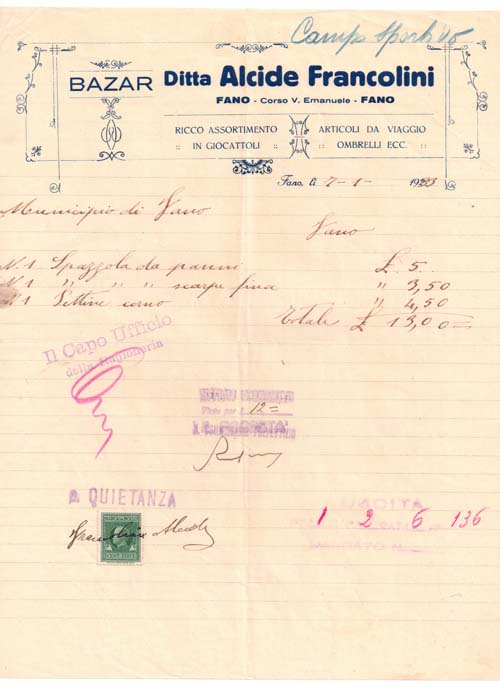 Campo Sportivo
BAZAR
Ditta Alcide Francolini
FANO - Corso V. Emanuele - FANO
RICCO ASSORTIMENTO
:: IN GIOCATTOLI ::
ARTICOLI DA VIAGGIO
:: OMBRELLI ECC. ::
Fano, li 7-1- 192
Municipio di Fano
Fano
N. 1 Spazzola da panni £ 5.
N. 1 " " " scarpe fina " 3,50
N. 1 Pettine corno " 4,50
Totale £ 13,00=
Il Capo Ufficio
della Ragioneria
Visto per L. 12=
A QUIETANZA
USCITA
1 2 6 136
MANDATO N.
MARCA DA BOLLO